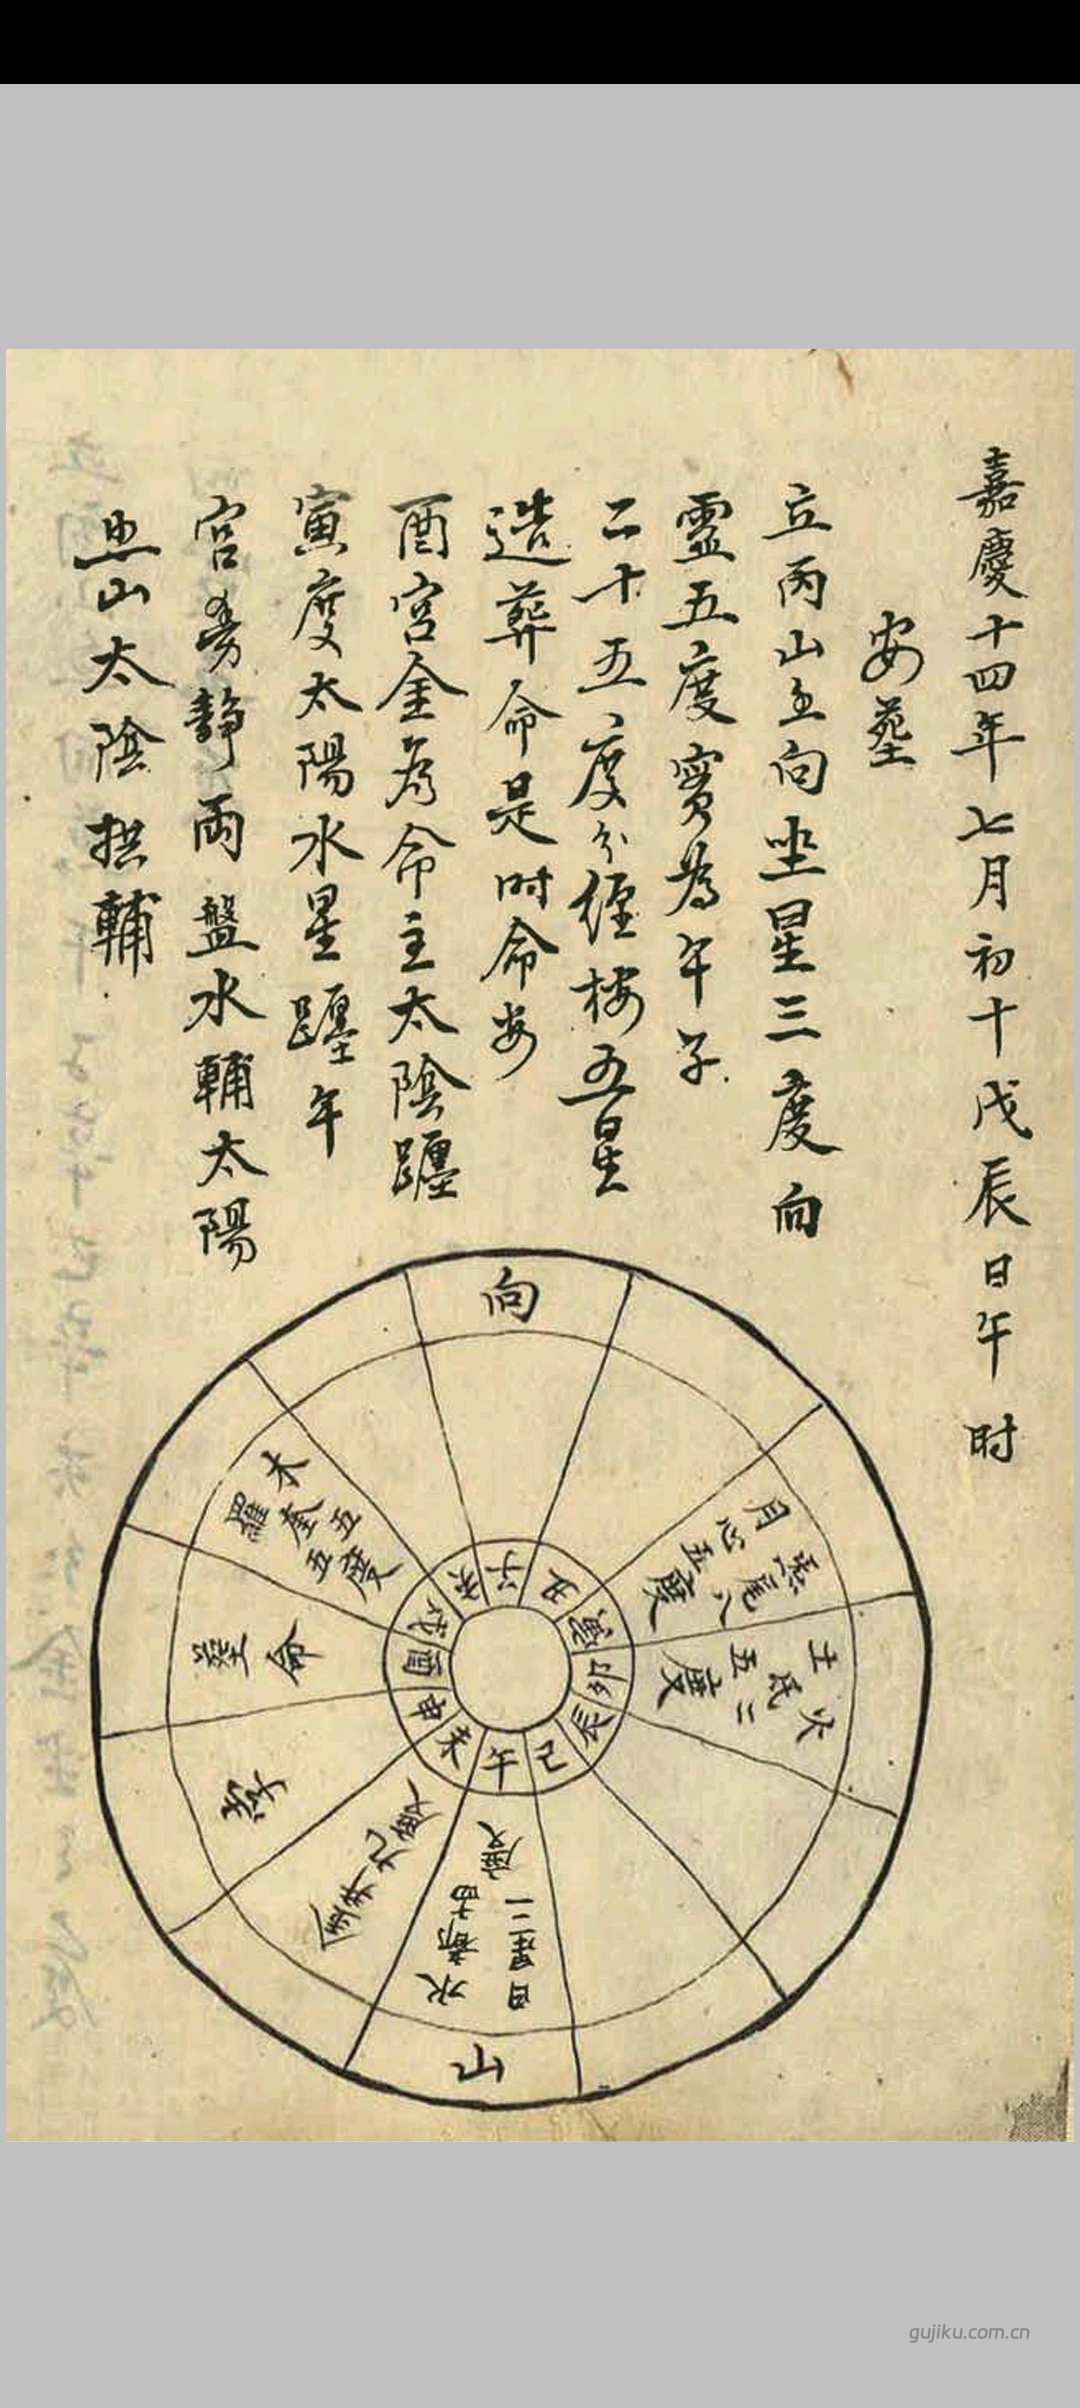 嘉慶十四年七月初十戊辰日午时
安墓
立丙山壬向坐星三度向
靈五度實為午子
二十五度分經楼五星
造葬命是时命安
酉宮金为命主太陰躔
寅度太陽水星躔午
宮旁静兩盤水輔太陽
照山太陰拱輔
向
木奎五
羅 五度
命
孛
金井九度
水
日星二度
山
土氐五度
火 二
炁尾八
月心五度
子
丑
寅
卯
辰
巳
午
未
申
酉
戌
亥
gujiku.com.cn